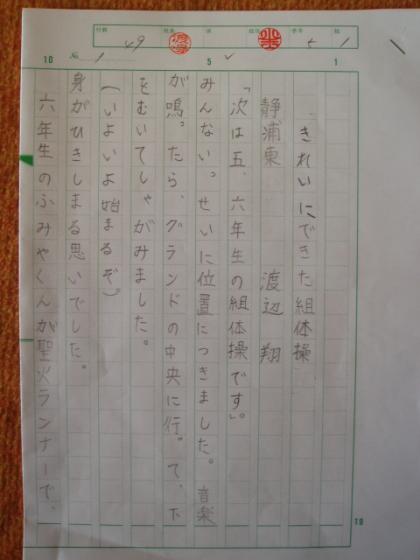 きれいにできた組体操
静浦東 渡辺 翔
「次は五、六年生の組体操です」。
みんない。せいに位置につきました。音楽
が鳴。たら、グランドの中央に行。て、下
をむいてしゃがみました。
(いよいよ始まるぞ)。
身がひきしまる思いでした。
六年生のふみやくんが聖火ランナーで、
10
5
1
19